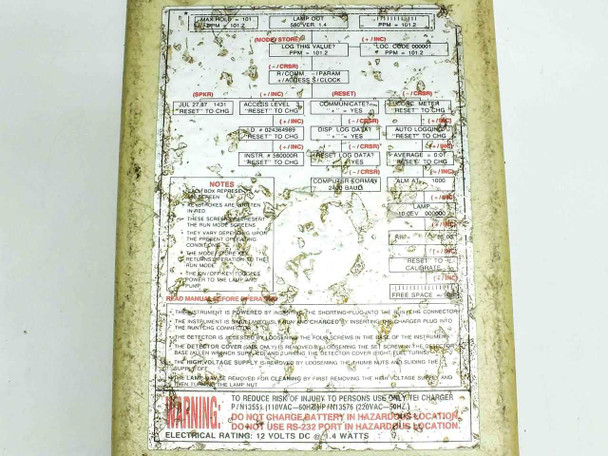 MAX HOLD = 101
PPM = 101.2
LAMP OUT
580 VER. 1.4
PPM = 101.2
(MODE/STORE)
(+/INC)
LOG THIS VALUE?
PPM = 101.2
LOC. CODE 000001
PPM = 101.2
(−/CRSR)
R/COMM −/PARAM
+/ACCESS S/CLOCK
(SPKR)
(+/INC)
(RESET)
(−/CRSR)
JUL 27,87 1431
"RESET" TO CHG
ACCESS LEVEL 3
"RESET" TO CHG
COMMUNICATE?
"+" = YES
METER
"RESET" TO CHG
(+/INC)
(−/CRSR)
(+/INC)
I.D. # 024364989
"RESET" TO CHG
DISP. LOG DATA?
"+" = YES
AUTO LOGGING
"RESET" TO CHG
(+/INC)
(−/CRSR)
(+/INC)
INSTR. # 580000R
"RESET" TO CHG
RESET LOG DATA?
"+" = YES
AVERAGE =
"RESET" TO CHG
(−/CRSR)
(+/INC)
COMPUTER FORMAT
BAUD
ALM AT 1000
(+/INC)
LAMP
(+/INC)
(+/INC)
"RESET" TO
CALIBRATE
(+/INC)
FREE SPACE =
NOTES
• EACH BOX REPRESENTS A
SCREEN
• KEYSTROKES ARE WRITTEN
IN RED
• THESE SCREENS REPRESENT
THE RUN MODE SCREENS
• THEY VARY DEPENDING UPON
THE PRESENT OPERATING
CONDITIONS
• THE MODE/STORE KEY
RETURNS OPERATION TO THE
RUN MODE
• THE ON/OFF KEY TOGGLES
POWER TO THE LAMP AND
PUMP
READ MANUAL BEFORE OPERATING
• THE INSTRUMENT IS POWERED BY INSERTING THE SHORTING PLUG INTO THE RUN/CHG CONNECTOR
• THE INSTRUMENT IS SIMULTANEOUSLY RUN AND CHARGED BY INSERTING THE CHARGER PLUG INTO
THE RUN/CHG CONNECTOR
• THE DETECTOR IS ACCESSED BY LOOSENING THE FOUR SCREWS IN THE BASE OF THE INSTRUMENT
• THE DETECTOR COVER ONLY) IS REMOVED BY LOOSENING THE SET SCREW IN THE DETECTOR
BASE (ALLEN WRENCH SUPPLIED) AND TURNING THE DETECTOR COVER FULL TURNS
• THE HIGH VOLTAGE SUPPLY IS REMOVED BY LOOSENING THE THUMB NUTS AND SLIDING THE
SUPPLY OFF
• THE LAMP MAY BE REMOVED FOR CLEANING BY FIRST REMOVING THE HIGH VOLTAGE SUPPLY AND
THEN TURNING THE LAMP NUT
WARNING:
TO REDUCE RISK OF INJURY TO PERSONS USE ONLY TEI CHARGER
P/N13551 (110VAC—60HZ) P/N13576 (220VAC—50HZ)
DO NOT CHARGE BATTERY IN HAZARDOUS LOCATION.
DO NOT USE RS-232 PORT IN HAZARDOUS LOCATION.
ELECTRICAL RATING: 12 VOLTS DC @ 1.4 WATTS